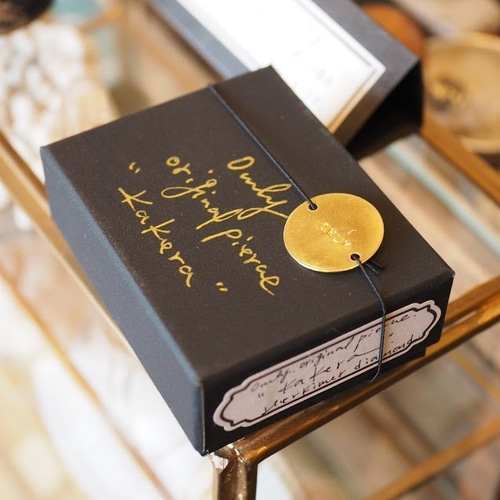 Omly
original pierce
"Kakera"
Omly original pierce.
"Kakera"
Herkimer diamond